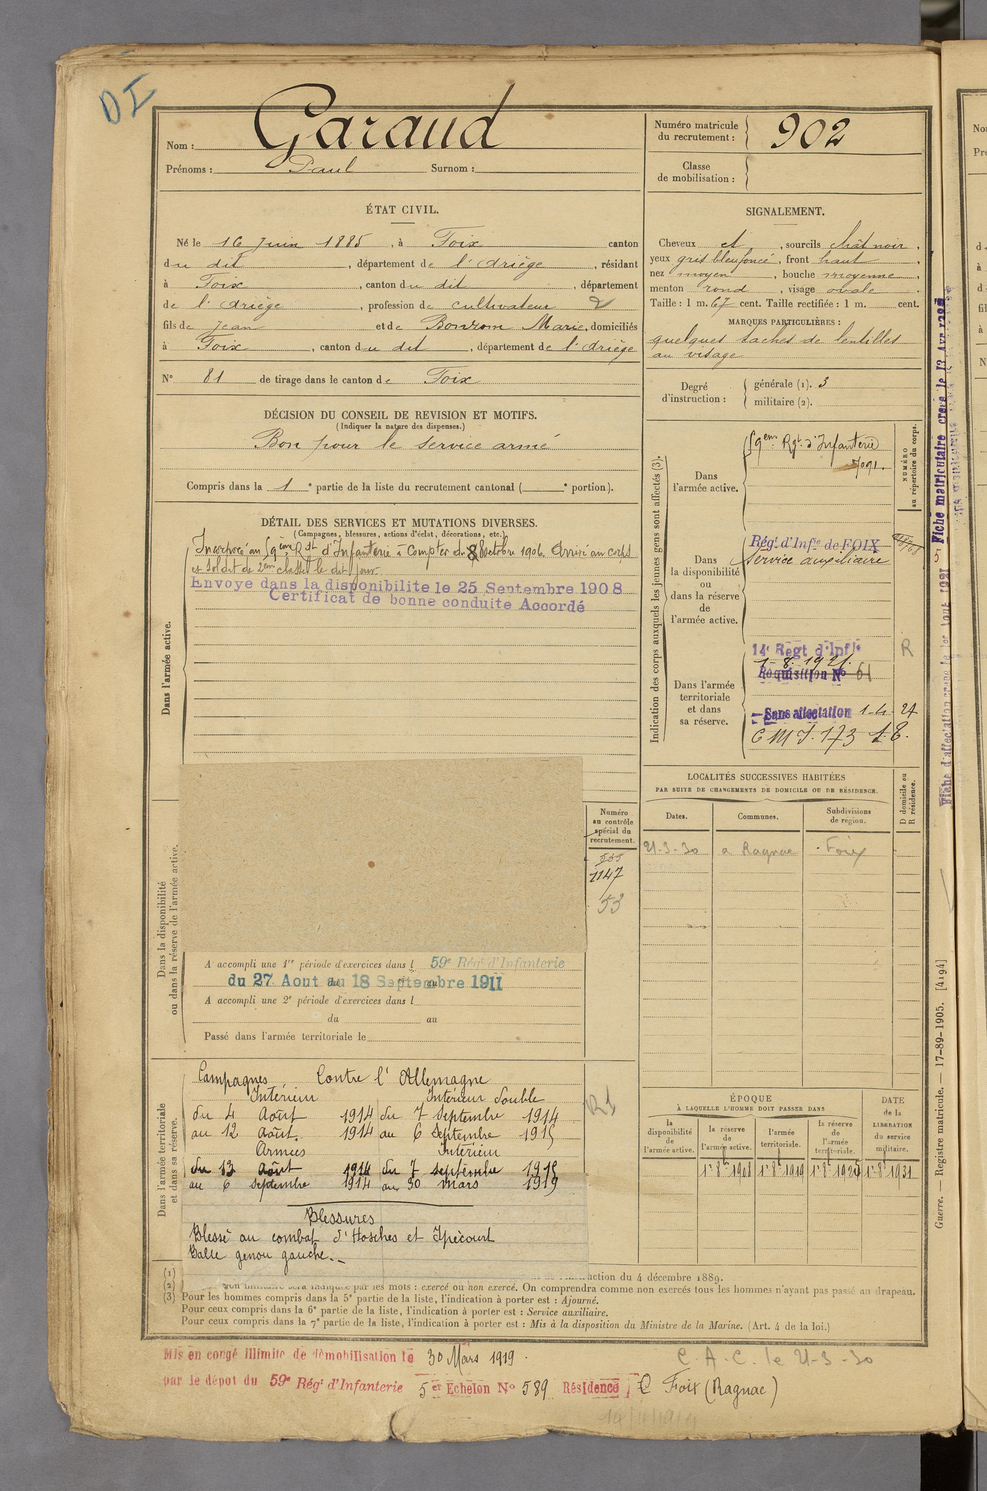 DI
Nom : Garaud
Prénoms : Paul Surnom :
Numéro matricule
du recrutement : 902
Classe
de mobilisation :
ÉTAT CIVIL.
Né le 16 Juin 1885, à Foix canton
du dit, département de l'Ariège, résidant
à Foix, canton du dit, département
de l'Ariège, profession de cultivateur
fils de Jean et de Bonzom Marie, domiciliés
à Foix, canton du dit, département de l'Ariège
N° 81 de tirage dans le canton de Foix
SIGNALEMENT.
Cheveux et, sourcils chât noir,
yeux gris bleu foncé, front haut,
nez moyen, bouche moyenne,
menton rond, visage ovale.
Taille : 1 m. 67 cent. Taille rectifiée : 1 m. cent.
MARQUES PARTICULIÈRES :
quelques taches de lentilles
au visage
Degré
d'instruction :
générale (1). 3
militaire (2).
DÉCISION DU CONSEIL DE REVISION ET MOTIFS.
(Indiquer la nature des dispenses.)
Bon pour le service armé
Compris dans la 1e partie de la liste du recrutement cantonal (e portion).
DÉTAIL DES SERVICES ET MUTATIONS DIVERSES.
(Campagnes, blessures, actions d'éclat, décorations, etc.)
Incorporé au 59ème Rgt d'Infanterie à compter du 8 Octobre 1906. Arrivé au corps
et soldat de 2ème classe le dit jour.
Envoyé dans la disponibilite le 25 Septembre 1908
Certificat de bonne conduite Accordé
Dans l'armée active.
Indication des corps auxquels les jeunes gens sont affectés (3).
NUMÉRO
au répertoire du corps.
Dans
l'armée active.
59em Rgt d'Infanterie
5091.
Dans
la disponibilité
ou
dans la réserve
de
l'armée active.
Régt d'Infie de FOIX
Service auxiliaire
Dans l'armée
territoriale
et dans
sa réserve.
14e Regt d'Infie
1-8-1921.
Réquisition N° 61
R
Sans affectation 1-4-27
C M J. 173 S.E.
LOCALITÉS SUCCESSIVES HABITÉES
PAR SUITE DE CHANGEMENTS DE DOMICILE OU DE RÉSIDENCE.
D domicile ou
R résidence.
Dates. Communes. Subdivisions
de région.
21-3-30 à Ragnac Foix
Dans la disponibilité
ou dans la réserve de l'armée active.
Numéro
au contrôle
spécial du
recrutement.
1147
53
A accompli une 1re période d'exercices dans l 59e Régt d'Infanterie
du 27 Aout au 18 Septembre 1911
A accompli une 2e période d'exercices dans l
du au
Passé dans l'armée territoriale le
Dans l'armée territoriale
et dans sa réserve.
Campagnes, Contre l'Allemagne
Intérieur Intérieur double
du 4 Août 1914 du 7 septembre 1914
au 12 Août. 1914 au 6 septembre 1915
Armées Intérieur
du 13 août 1914 du 7 septembre 1915
au 6 septembre 1914 au 30 mars 1919
Blessures
Blessé au combat d'Hosches et Ipécourt
Balle genou gauche.
ÉPOQUE
À LAQUELLE L'HOMME DOIT PASSER DANS
DATE
de la
LIBÉRATION
du service
militaire.
la
disponibilité
de
l'armée active.
la réserve
de
l'armée active.
l'armée
territoriale.
la réserve
de
l'armée
territoriale.
1er 8bre 1908 1er 8bre 1919 1er 8bre 1925 1er 8bre 1931
(1) uction du 4 décembre 1889.
(2) par les mots : exercé ou non exercé. On comprendra comme non exercés tous les hommes n'ayant pas passé au drapeau.
(3) Pour les hommes compris dans la 5e partie de la liste, l'indication à porter est : Ajourné.
Pour ceux compris dans la 6e partie de la liste, l'indication à porter est : Service auxiliaire.
Pour ceux compris dans la 7e partie de la liste, l'indication à porter est : Mis à la disposition du Ministre de la Marine. (Art. 4 de la loi.)
Mis en congé illimité de démobilisation le 30 Mars 1919.
par le dépot du 59e Régt d'Infanterie 5er Echelon N° 589 Résidence Foix (Ragnac)
C. A. C. le 21-3-30
Guerre. — Registre matricule. — 17-89-1905. [4194]